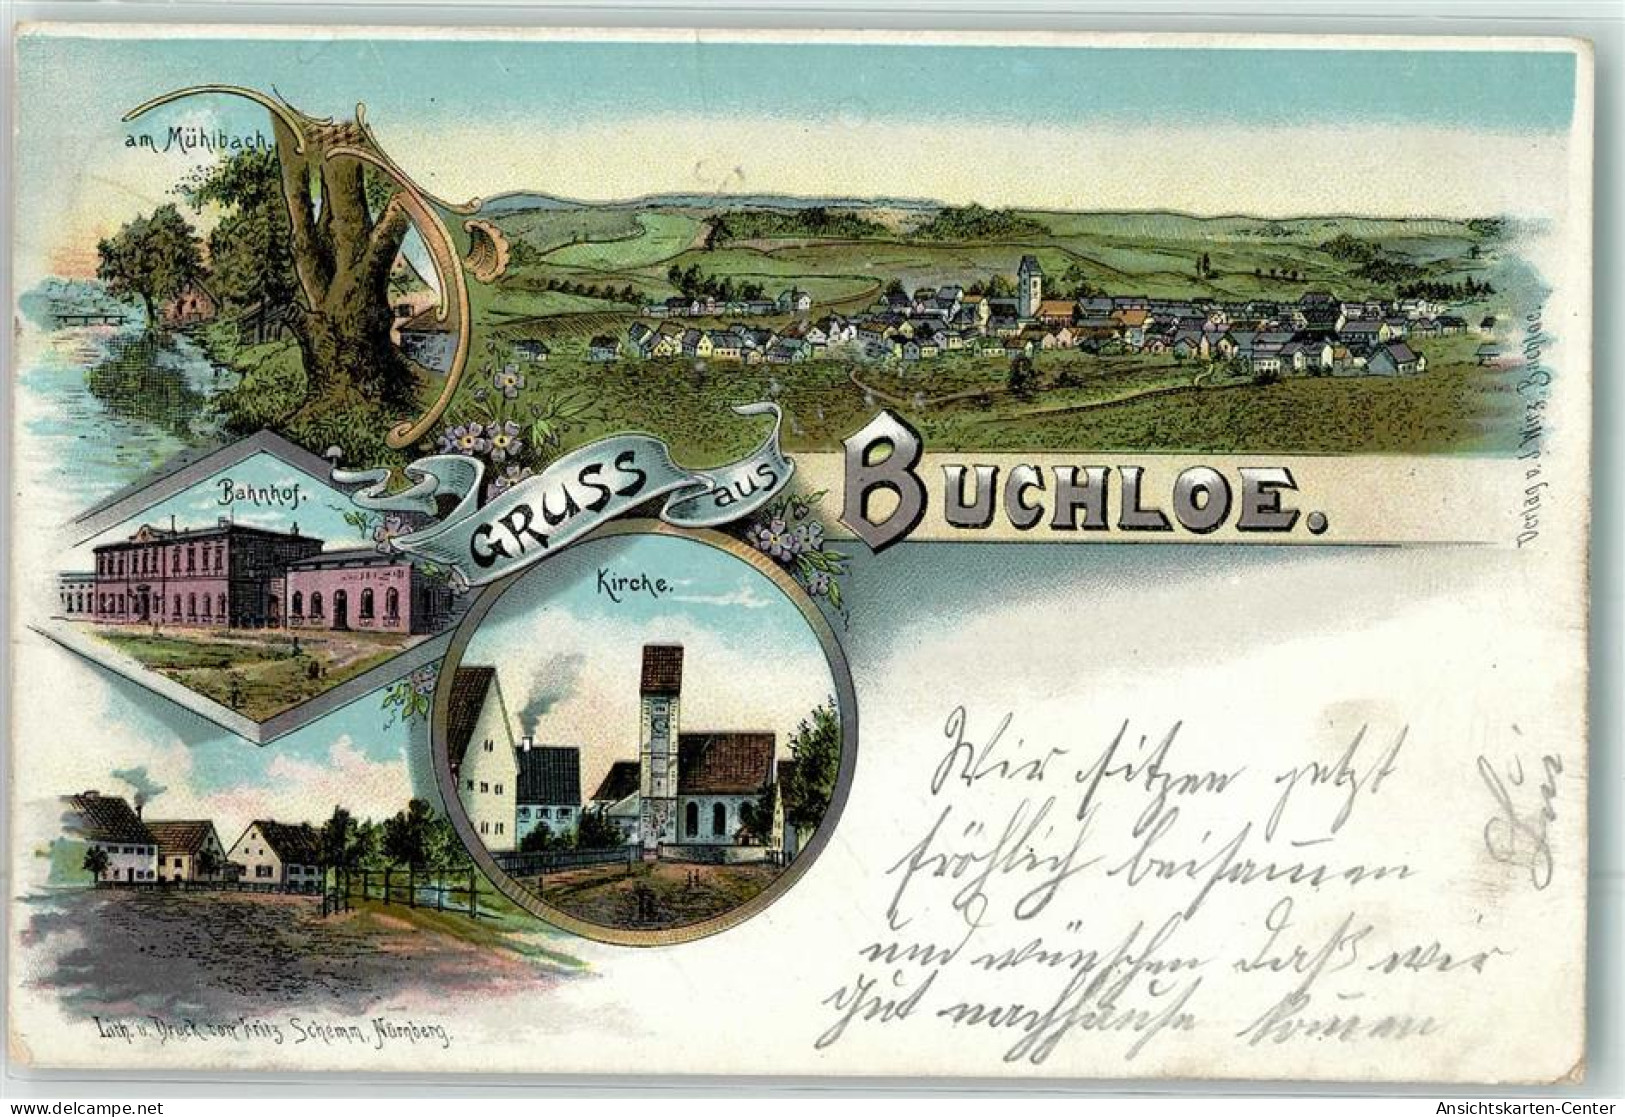 am Mühlbach.
Bahnhof.
GRUSS aus BUCHLOE.
Kirche.
Verlag v. J. Wirz, Buchloe.
Wir sitzen jetzt
fröhlich beisamen
und wünschen daß wir
gut nachhause komen
Lith. u. Druck von Fritz Schemm, Nürnberg.
delcampe.net
Ansichtskarten-Center